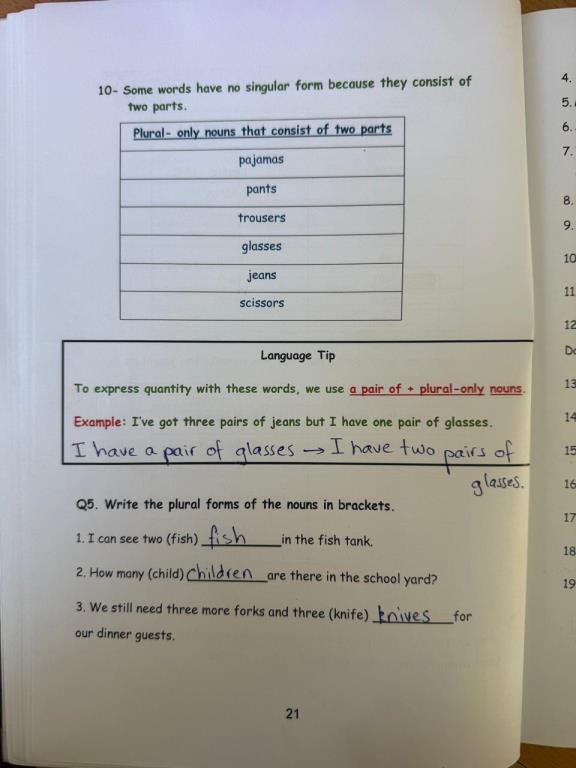 10- Some words have no singular form because they consist of
two parts.
Plural- only nouns that consist of two parts
pajamas
pants
trousers
glasses
jeans
scissors
Language Tip
To express quantity with these words, we use a pair of + plural-only nouns.
Example: I've got three pairs of jeans but I have one pair of glasses.
I have a pair of glasses → I have two pairs of
glasses.
Q5. Write the plural forms of the nouns in brackets.
1. I can see two (fish) fish in the fish tank.
2. How many (child) children are there in the school yard?
3. We still need three more forks and three (knife) knives for
our dinner guests.
21
4.
5.
6.
7.
8.
9.
10
11
12
Do
13
14
15
16
17
18
19